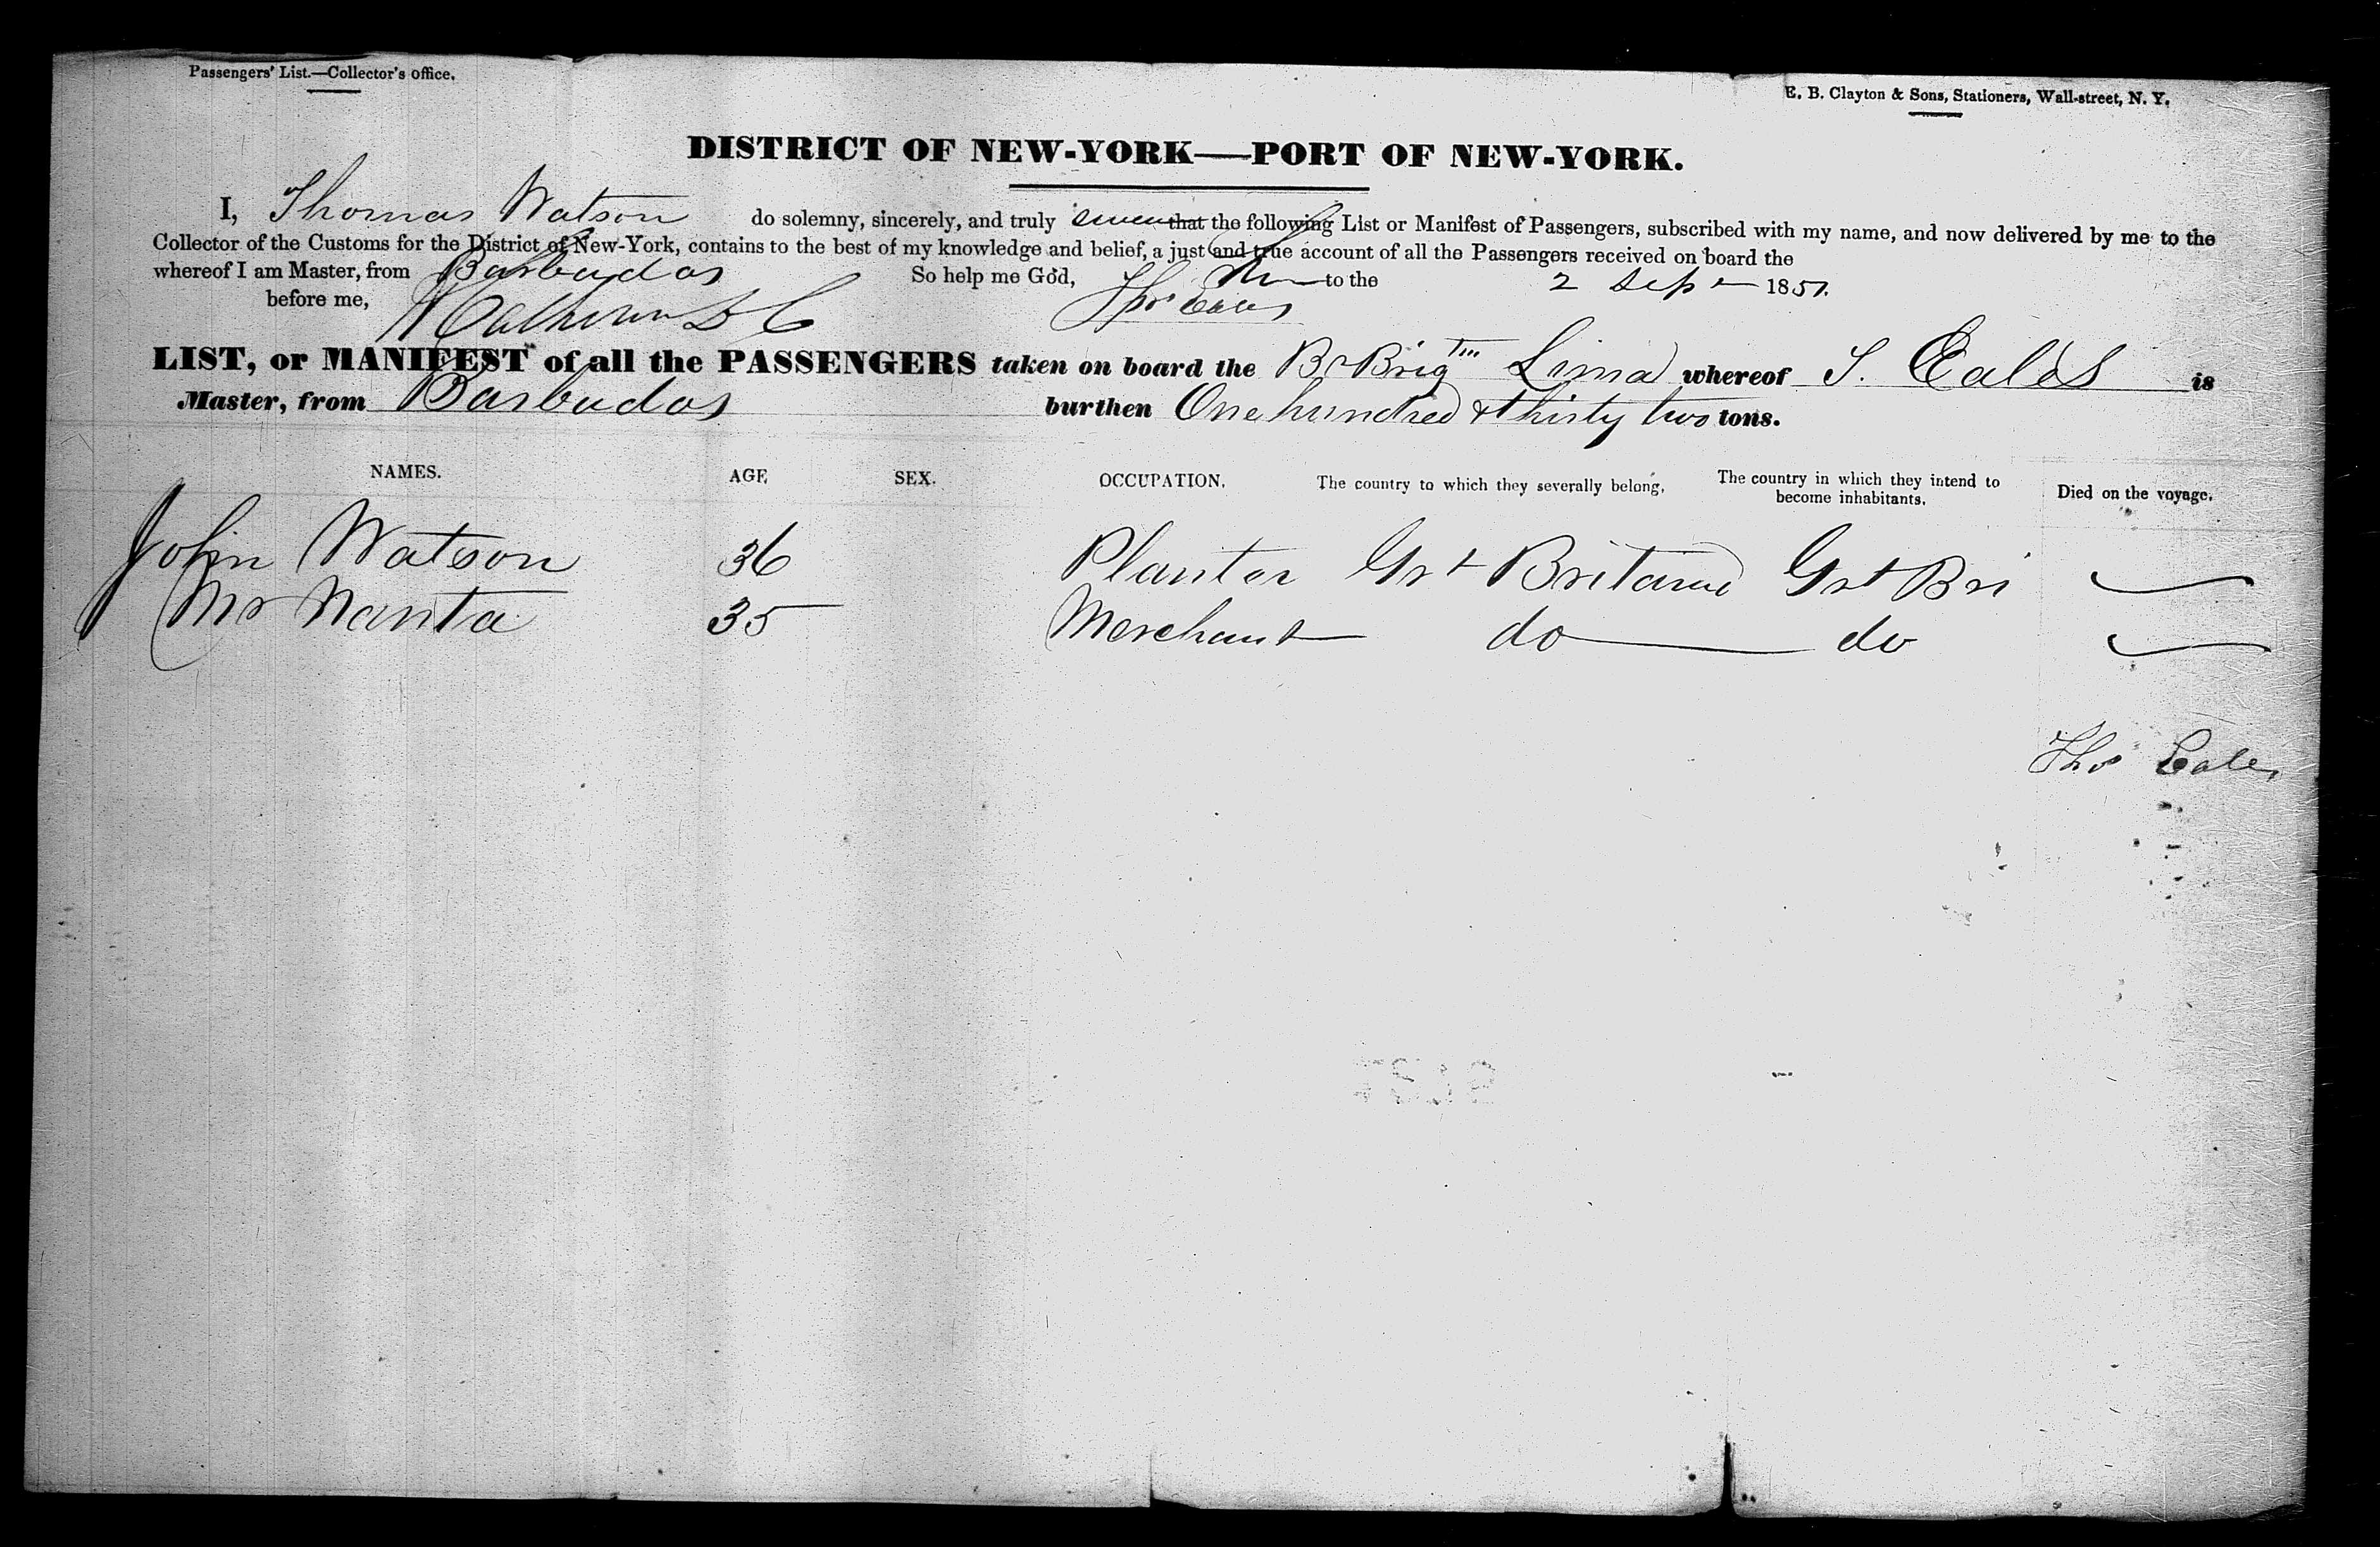 Passengers' List.—Collector's office.
E. B. Clayton & Sons, Stationers, Wall-street, N. Y.
DISTRICT OF NEW-YORK—PORT OF NEW-YORK.
I, Thomas Watson do solemny, sincerely, and truly that the following List or Manifest of Passengers, subscribed with my name, and now delivered by me to the
Collector of the Customs for the District of New-York, contains to the best of my knowledge and belief, a just and true account of all the Passengers received on board the
whereof I am Master, from Barbudos So help me God, to the 2 Sep 1851.
before me, Thos Eales
LIST, or MANIFEST of all the PASSENGERS taken on board the Br Brig Lima whereof T. Eales is
Master, from Barbudos burthen One hundred & thirty two tons.
NAMES. AGE SEX. OCCUPATION. The country to which they severally belong. The country in which they intend to become inhabitants. Died on the voyage.
John Watson 36 Planter Grt Britain Grt Bri
Mr Nanta 35 Merchant do do
Thos Eales